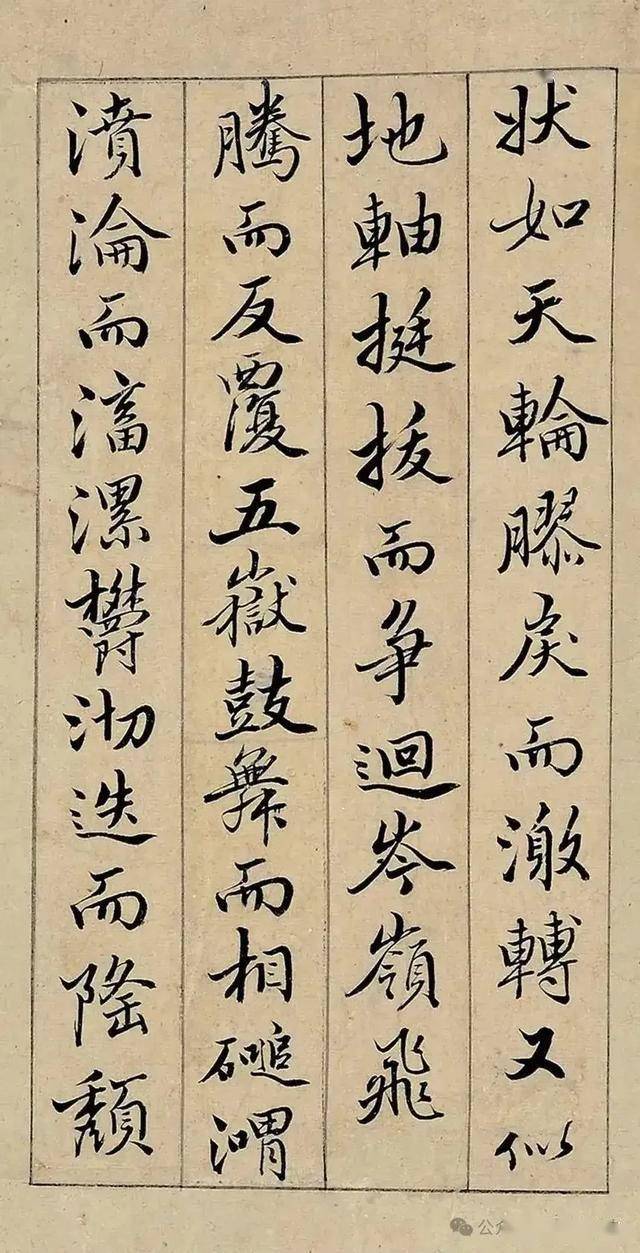 狀如天輪膠戾而激轉又似
地軸挺拔而爭迴岑嶺飛
騰而反覆五嶽鼓舞而相磓渭
濆淪而滀漯鬱沏迭而隆頹
公众